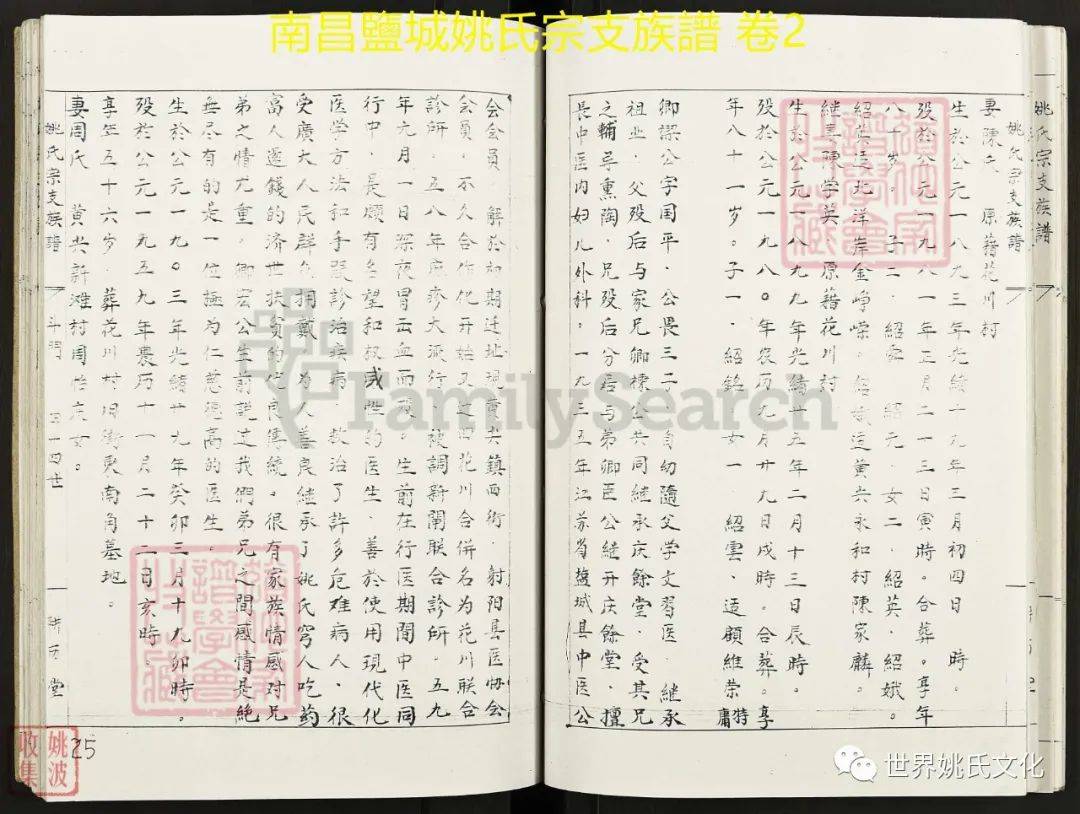 南昌鹽城姚氏宗支族譜 卷2
姚氏宗支族譜
姚氏宗支族譜
妻陳氏 原籍花川村
生於公元一八九三年光緒十九年三月初四日 時。
歿於公元一九八一年正月二十三日寅時。合葬。享年
八十 岁。子二 紹家 紹元 女二 紹英 紹娥
紹 适北洋岸金崢嶸。紹娥适黃尖永和村陳家麟。
継妻陳学英 原籍花川村
生於公元一八九九年光緒廿五年二月十三日辰時。
歿於公元一九八〇年农历九月廿九日戍時。合葬。享
年八十一岁。子一 紹銘 女一 紹雲 适顧維荣
特庸
卿 公字国平。公畏三子 自幼隨父学文習医 継承
祖业。父歿后与家兄卿標公共同継承庆餘堂。受其兄
之輔导熏陶。兄歿后分居与弟卿臣公継开庆餘堂。擅
長中医内妇儿外科。一九三五年江苏省鹽城县中医公
会会員。解放初期迁址現黃尖鎮西街。射阳县医协会
会員。不久合作化开始又迁回花川合併名为花川联合
診所。五八年麻疹大流行 被調新闸联合診所。五九
年九月一日深夜胃出血而 。生前在行医期間中医同
行中。是頗有名望和权威性的医生。善於使用現代化
医学方法和手段診治疾病。救治了許多危难病人。很
受廣大人民群众拥戴 为人善良継承了姚氏穷人吃药
富人還錢的济世扶贫的优良傳統。很有家族情感对兄
弟之情尤重。卿宏公生前説过我們弟兄之間感情是絶
無尽有的是一位極为仁慈德高的医生。
生於公元一九〇三年光緒廿九年癸卯三月十九卯時。
歿於公元一九五九年農历十一月二十二日亥時。
享年五十六岁。葬花川村旧街東南角墓地。
妻周氏 黃尖新滩村周怡 女。
姚氏宗支族譜 斗門 三一四世 堂
25
姚波收集
FamilySearch
世界姚氏文化